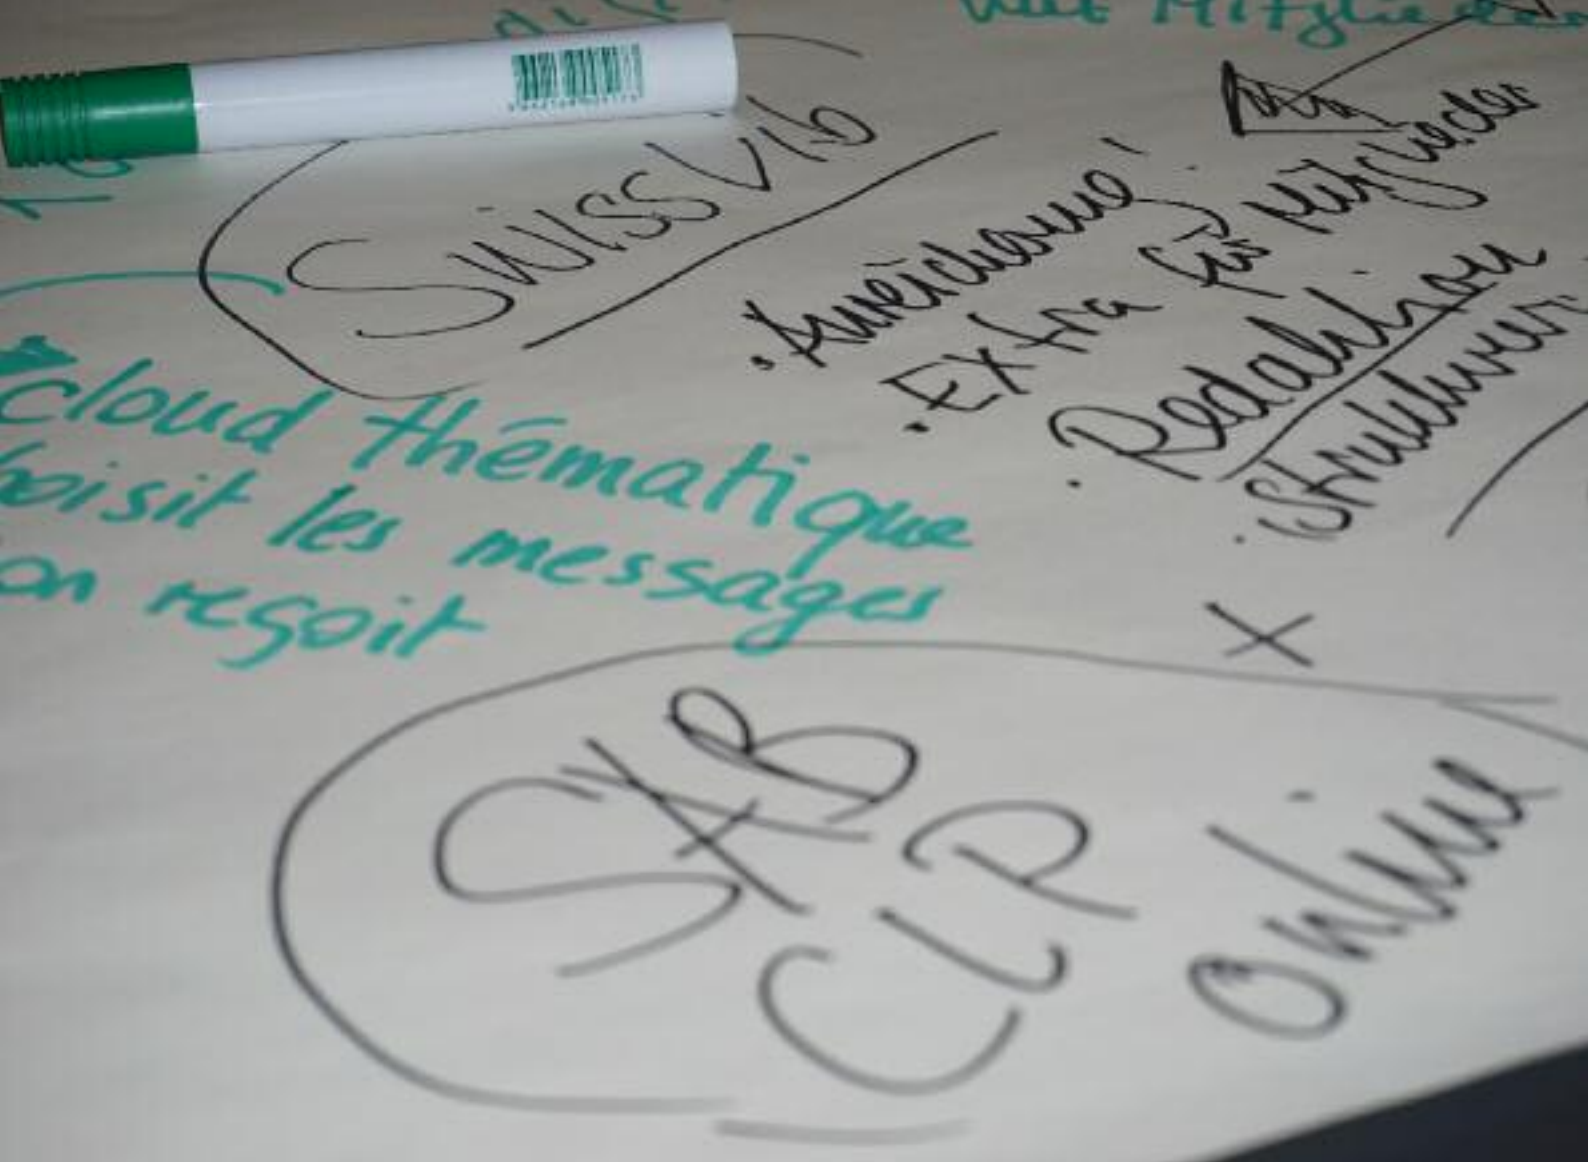 mit Mitglieder
SwissLib
• Anreicherung!
• Extra für Mitglieder
• Redaktion
• Strukturer
cloud thématique
hoisit les messages
on reçoit
SAB
CLP
online